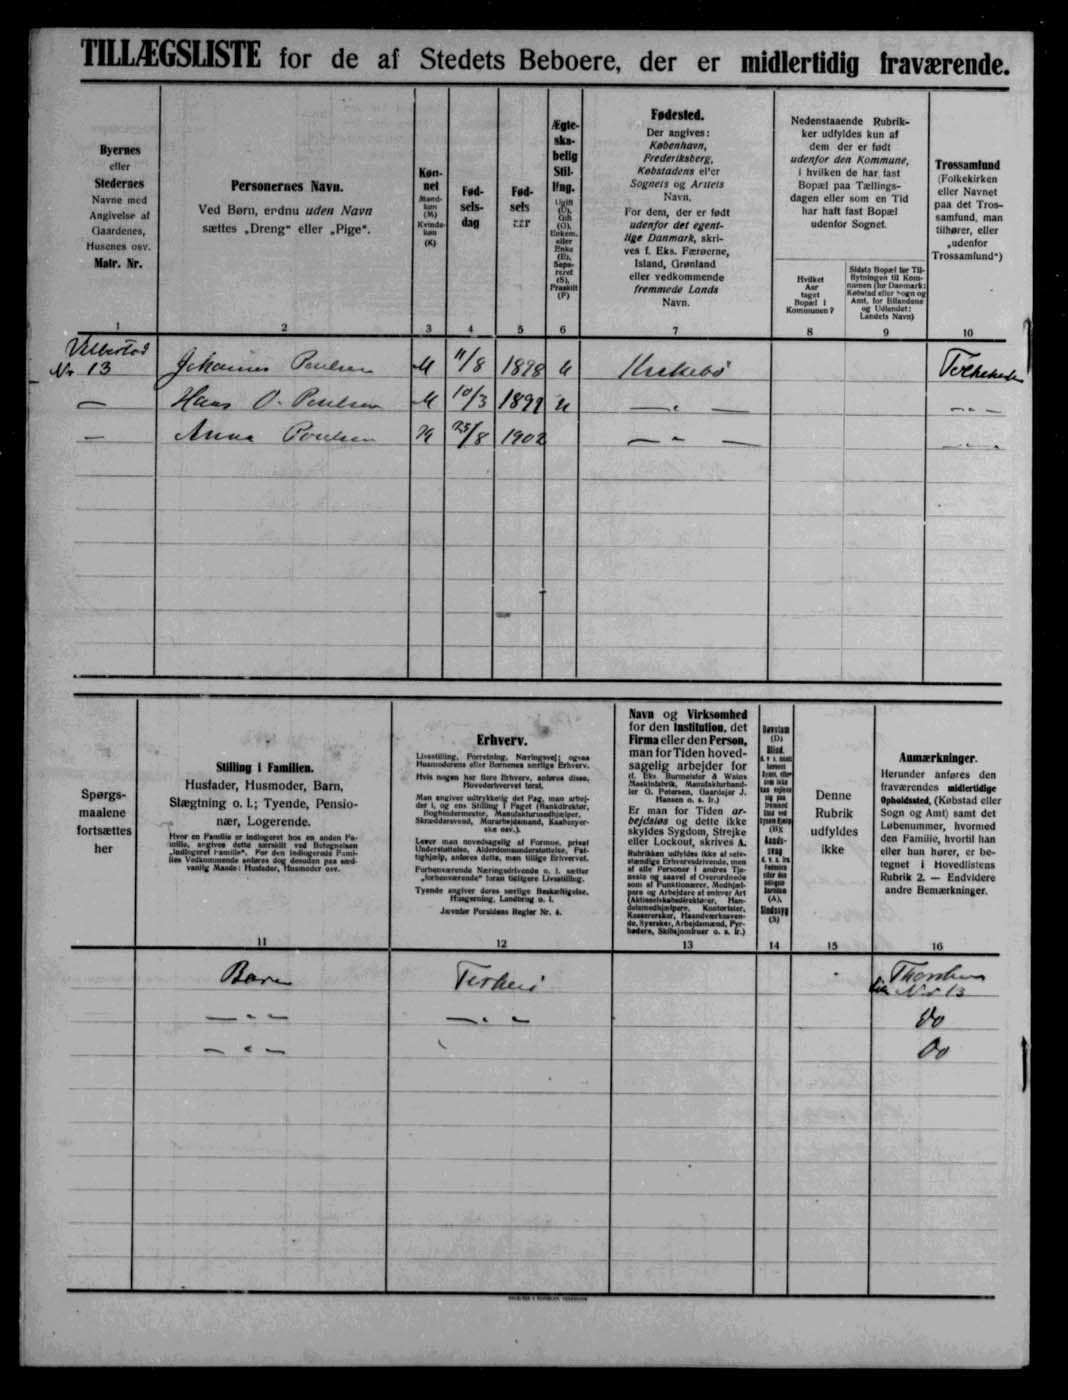 TILLÆGSLISTE for de af Stedets Beboere, der er midlertidig fraværende.
Byernes
eller
Stedernes
Navne med
Angivelse af
Gaardenes,
Husenes osv.
Matr. Nr.
1
Personernes Navn.
Ved Børn, endnu uden Navn
sættes „Dreng“ eller „Pige“.
2
Køn-
net
Mand-
køn
(M)
Kvinde-
køn
(K)
3
Fød-
sels-
dag
4
Fød-
sels
aar
5
Ægte-
ska-
belig
Stil-
ling.
Ugift
(U),
Gift
(G),
Enkem.
eller
Enke
(E),
Sepa-
reret
(S),
Fraskilt
(F)
6
Fødested.
Der angives:
København,
Frederiksberg,
Købstadens eller
Sognets og Amtets
Navn.
For dem, der er født
udenfor det egent-
lige Danmark, skri-
ves f. Eks. Færøerne,
Island, Grønland
eller vedkommende
fremmede Lands
Navn.
7
Nedenstaaende Rubrik-
ker udfyldes kun af
dem der er født
udenfor den Kommune,
i hvilken de har fast
Bopæl paa Tællings-
dagen eller som en Tid
har haft fast Bopæl
udenfor Sognet.
Hvilket
Aar
taget
Bopæl i
Kommunen?
8
Sidste Bopæl før Til-
flytningen til Kom-
munen (for Danmark:
Købstad eller Sogn og
Amt, for Bilandene
og Udlandet:
Landets Navn)
9
Trossamfund
(Folkekirken
eller Navnet
paa det Tros-
samfund, man
tilhører, eller
„udenfor
Trossamfund“)
10
Nr 13 Johannes Poulsen M 11/8 1898 U
— Hans O. Poulsen M 10/3 1899 U — " — — " —
— Anna Poulsen K 23/8 1902 — " — — " —
Spørgs-
maalene
fortsættes
her
Stilling i Familien.
Husfader, Husmoder, Barn,
Slægtning o. l.; Tyende, Pensio-
nær, Logerende.
Hvor en Familie er indlogeret hos en anden Fa-
milie, angives dette særskilt ved Betegnelsen
„indlogeret Familie“. For den indlogerede Fami-
lies Vedkommende anføres dog desuden paa sæd-
vanlig Maade: Husfader, Husmoder osv.
11
Erhverv.
Livsstilling, Forretning, Næringsvej; ogsaa
Husmoderens eller Børnenes særlige Erhverv.
Hvis nogen har flere Erhverv, anføres disse,
Hovederhvervet først.
Man angiver udtrykkelig det Fag, man arbej-
der i, og ens Stilling i Faget (Bankdirektør,
Bogbindermester, Manufakturmedhjælper,
Skræddersvend, Murarbejdsmand, Kaabesyer-
ske osv.).
Lever man hovedsagelig af Formue, privat
Understøttelse, Alderdomsunderstøttelse, Fat-
tighjælp, anføres dette, man tillige Erhvervet.
Forhenværende Næringsdrivende o. l. sætter
„forhenværende“ foran tidligere Livsstilling.
Tyende angiver deres særlige Beskæftigelse,
Husgerning, Landbrug o. l.
Jævnfør Forsidens Regler Nr. 4.
12
Navn og Virksomhed
for den Institution, det
Firma eller den Person,
man for Tiden hoved-
sagelig arbejder for
(f. Eks. Burmeister & Wains
Maskinfabrik, Manufakturhand-
ler G. Petersen, Gaardejer J.
Hansen o. s. fr.)
Er man for Tiden ar-
bejdsløs og dette ikke
skyldes Sygdom, Strejke
eller Lockout, skrives A.
Rubrikken udfyldes ikke af selv-
stændige Erhvervsdrivende, men
af alle Personer i andres Tje-
neste og saavel af Overordnede
som af Funktionærer, Medhjæl-
pere og Arbejdere af enhver Art
(Aktieselskabsdirektører, Han-
delsmedhjælpere, Kontorister,
Kassererkser, Haandværkssven-
de, Syersker, Arbejdsmænd, Fyr-
bødere, Skibsjomfruer o. s. fr.)
13
Døvstum
(D)
Blind
(B);
Aands-
svag
(A),
Sindssyg
(S)
14
Denne
Rubrik
udfyldes
ikke
15
Anmærkninger.
Herunder anføres den
fraværendes midlertidige
Opholdssted, (Købstad eller
Sogn og Amt) samt det
Løbenummer, hvormed
den Familie, hvortil han
eller hun hører, er be-
tegnet i Hovedlistens
Rubrik 2. — Endvidere
andre Bemærkninger.
16
Barn Thorshavn
Nr 13
— " — — " — do
— " — do